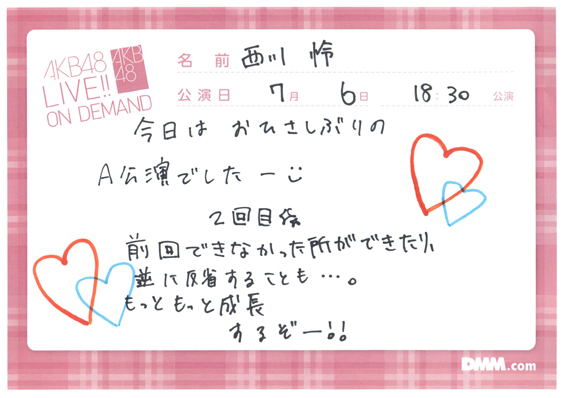 AKB48
LIVE!!
ON DEMAND
AKB
48
名前 西川 怜
公演日 7月 6日 18:30 公演
今日は おひさしぶりの
A公演でしたー
2回目
前回できなかった所ができたり、
逆に反省することも…。
もっともっと成長
するぞー!!
DMM.com